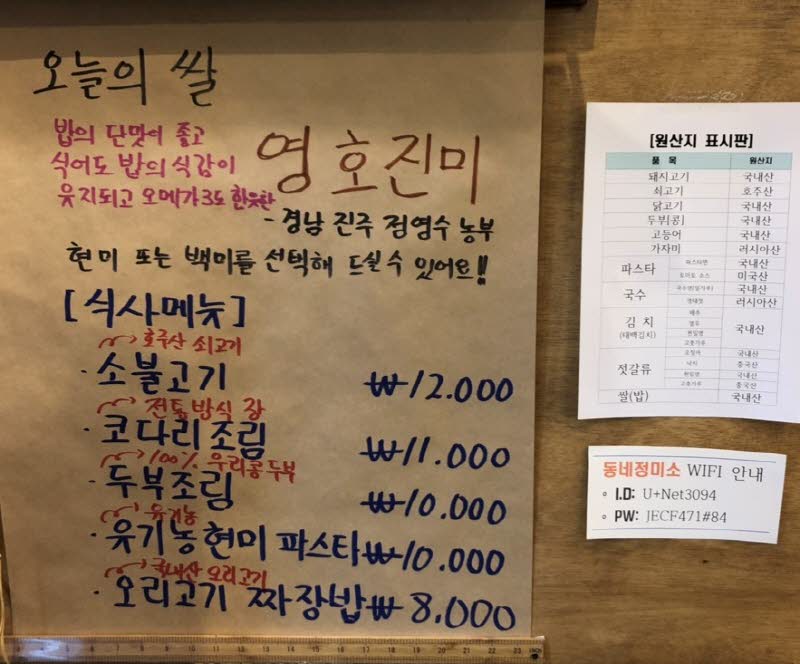 오늘의 쌀
밥의 단맛이 좋고
식어도 밥의 식감이
유지되고 오메가3도 한웃찬
영호진미
- 경남 진주 정영수 농부
현미 또는 백미를 선택해 드실 수 있어요!!
[식사메뉴]
호주산 쇠고기
· 소불고기 ₩12.000
전통방식 장
· 코다리조림 ₩11.000
100% 우리콩두부
· 두부조림 ₩10.000
유기농
· 유기농현미 파스타 ₩10.000
국내산 오리고기
· 오리고기 짜장밥 ₩8.000
[원산지 표시판]
품 목 원산지
돼지고기 국내산
쇠고기 호주산
닭고기 국내산
두부[콩] 국내산
고등어 국내산
가자미 러시아산
파스타 파스타면 국내산
토마토 소스 미국산
국수 국수면(밀가루) 국내산
러시아산
김 치 배추 국내산
(태백김치)
고춧가루
젓갈류 오징어 국내산
낙지 중국산
국내산
고춧가루 중국산
쌀(밥) 국내산
동네정미소 WIFI 안내
I.D: U+Net3094
PW: JECF471#84